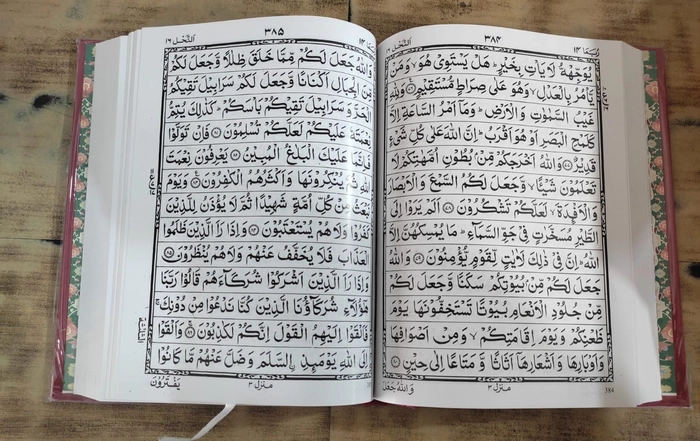 ربما ١٤
٣٨٤
النحل ١٦
يُوَجِّهْهُّ لَا يَاْتِ بِخَيْرٍ ؕ هَلْ يَسْتَوِيْ هُوَ ۙ وَمَنْ
يَّاْمُرُ بِالْعَدْلِ ۙ وَهُوَ عَلٰى صِرَاطٍ مُّسْتَقِيْمٍ ۟ وَلِلّٰهِ
غَيْبُ السَّمٰوٰتِ وَالْاَرْضِ ؕ وَمَاۤ اَمْرُ السَّاعَةِ اِلَّا
كَلَمْحِ الْبَصَرِ اَوْ هُوَ اَقْرَبُ ؕ اِنَّ اللّٰهَ عَلٰى كُلِّ شَيْءٍ
قَدِيْرٌ ۟ وَاللّٰهُ اَخْرَجَكُمْ مِّنْۢ بُطُوْنِ اُمَّهٰتِكُمْ لَا
تَعْلَمُوْنَ شَيْـًٔا ۙ وَّجَعَلَ لَكُمُ السَّمْعَ وَالْاَبْصَارَ
وَالْاَفْـِٕدَةَ ۙ لَعَلَّكُمْ تَشْكُرُوْنَ ۟ اَلَمْ يَرَوْا اِلَى
الطَّيْرِ مُسَخَّرٰتٍ فِيْ جَوِّ السَّمَآءِ ؕ مَا يُمْسِكُهُنَّ اِلَّا
اللّٰهُ ؕ اِنَّ فِيْ ذٰلِكَ لَاٰيٰتٍ لِّقَوْمٍ يُّؤْمِنُوْنَ ۟ وَاللّٰهُ
جَعَلَ لَكُمْ مِّنْۢ بُيُوْتِكُمْ سَكَنًا وَّجَعَلَ لَكُمْ
مِّنْ جُلُوْدِ الْاَنْعَامِ بُيُوْتًا تَسْتَخِفُّوْنَهَا يَوْمَ
ظَعْنِكُمْ وَيَوْمَ اِقَامَتِكُمْ ۙ وَمِنْ اَصْوَافِهَا
وَاَوْبَارِهَا وَاَشْعَارِهَاۤ اَثَاثًا وَّمَتَاعًا اِلٰى حِيْنٍ ۟
وَاللّٰهُ جَعَلَ
منزل ٣
384
ربما ١٤
٣٨٥
النحل ١٦
وَاللّٰهُ جَعَلَ لَكُمْ مِّمَّا خَلَقَ ظِلٰلًا وَّجَعَلَ لَكُمْ
مِّنَ الْجِبَالِ اَكْنَانًا وَّجَعَلَ لَكُمْ سَرَابِيْلَ تَقِيْكُمُ
الْحَرَّ وَسَرَابِيْلَ تَقِيْكُمْ بَاْسَكُمْ ؕ كَذٰلِكَ يُتِمُّ
نِعْمَتَهٗ عَلَيْكُمْ لَعَلَّكُمْ تُسْلِمُوْنَ ۟ فَاِنْ تَوَلَّوْا
فَاِنَّمَا عَلَيْكَ الْبَلٰغُ الْمُبِيْنُ ۟ يَعْرِفُوْنَ نِعْمَتَ
اللّٰهِ ثُمَّ يُنْكِرُوْنَهَا وَاَكْثَرُهُمُ الْكٰفِرُوْنَ ۟ وَيَوْمَ
نَبْعَثُ مِنْ كُلِّ اُمَّةٍ شَهِيْدًا ثُمَّ لَا يُؤْذَنُ لِلَّذِيْنَ
كَفَرُوْا وَلَا هُمْ يُسْتَعْتَبُوْنَ ۟ وَاِذَا رَاَ الَّذِيْنَ ظَلَمُوا
الْعَذَابَ فَلَا يُخَفَّفُ عَنْهُمْ وَلَا هُمْ يُنْظَرُوْنَ ۟
وَاِذَا رَاَ الَّذِيْنَ اَشْرَكُوْا شُرَكَآءَهُمْ قَالُوْا رَبَّنَا
هٰۤؤُلَآءِ شُرَكَآؤُنَا الَّذِيْنَ كُنَّا نَدْعُوْا مِنْ دُوْنِكَ ۚ
فَاَلْقَوْا اِلَيْهِمُ الْقَوْلَ اِنَّكُمْ لَكٰذِبُوْنَ ۟ وَاَلْقَوْا
اِلَى اللّٰهِ يَوْمَىِٕذِ اِ۟لسَّلَمَ وَضَلَّ عَنْهُمْ مَّا كَانُوْا
يَفْتَرُوْنَ
منزل ٣